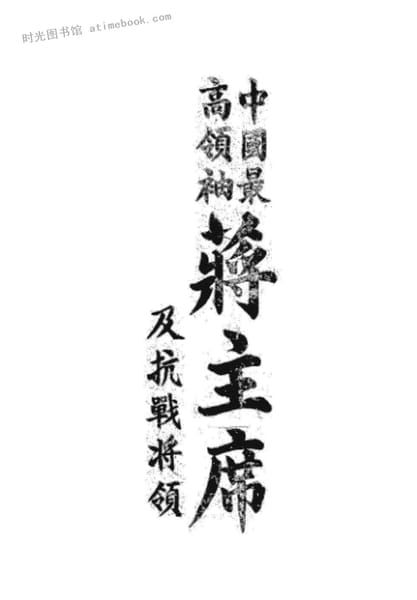 时光图书馆 atimebook.com
中國最
高領袖
蔣主席
及抗戰将領